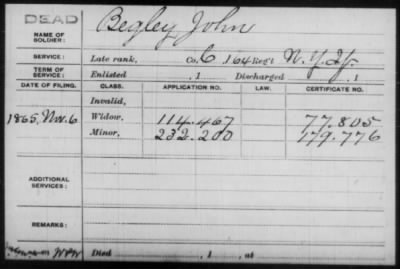 DEAD
NAME OF SOLDIER: Begley John
SERVICE: Late rank, Co. C, 164 Reg't N.Y. If.
TERM OF SERVICE: Enlisted , 1 Discharged , 1
DATE OF FILING. CLASS. APPLICATION NO. LAW. CERTIFICATE NO.
Invalid,
1865, Nov. 6 Widow, 114.467 77.805
Minor, 232.200 179.776
ADDITIONAL SERVICES:
REMARKS:
Died , 1 , at